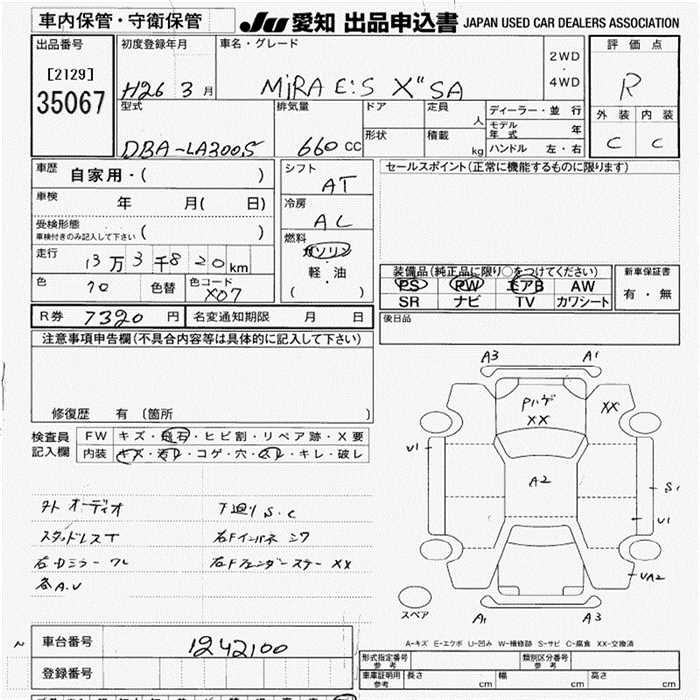 車内保管・守衛保管
JU 愛知 出品申込書 JAPAN USED CAR DEALERS ASSOCIATION
出品番号
[2129]
35067
初度登録年月
H26 3 月
車名・グレード
MiRA E:S X" SA
2WD
・
4WD
評価点
R
外装 内装
C C
型式
DBA-LA300S
排気量
660 CC
ドア
形状
定員
人
積載
kg
ディーラー・並行
モデル年式 年
ハンドル 左・右
車歴
自家用・( )
車検
年 月( 日)
受検形態
車検付きのみ記入して下さい ( )
走行
13万3千820km
色
70
色替
色コード
X07
シフト
AT
冷房
AC
燃料
ガソリン
・
軽・油
( )
セールスポイント(正常に機能するものに限ります)
装備品(純正品に限り○をつけてください)
PS PW エアB AW
SR ナビ TV カワシート
新車保証書
有・無
後日品
R券 7320 円
名変通知期限 月 日
注意事項申告欄(不具合内容等は具体的に記入して下さい)
修復歴 有 (箇所 )
検査員
記入欄
FW キズ・飛石・ヒビ割・リペア跡・X要
内装 キズ・汚レ・コゲ・穴・スレ・キレ・破レ
外 オーディオ
スタッドレスT
右Dミラー ワレ
各A.U
下廻りS.C
右Fインパネ シワ
右Fフェンダーステー XX
A3 A1
Pハゲ
XX
XX
U1
A2
S1
U1
UA2
スペア
A1 A3
A-キズ E-エクボ U-凹み W-補修跡 S-サビ C-腐食 XX-交換済
車台番号
1242100
登録番号
形式指定番号
参考
類別区分番号
参考
車庫証明用
参考
長さ cm
幅 cm
高さ cm